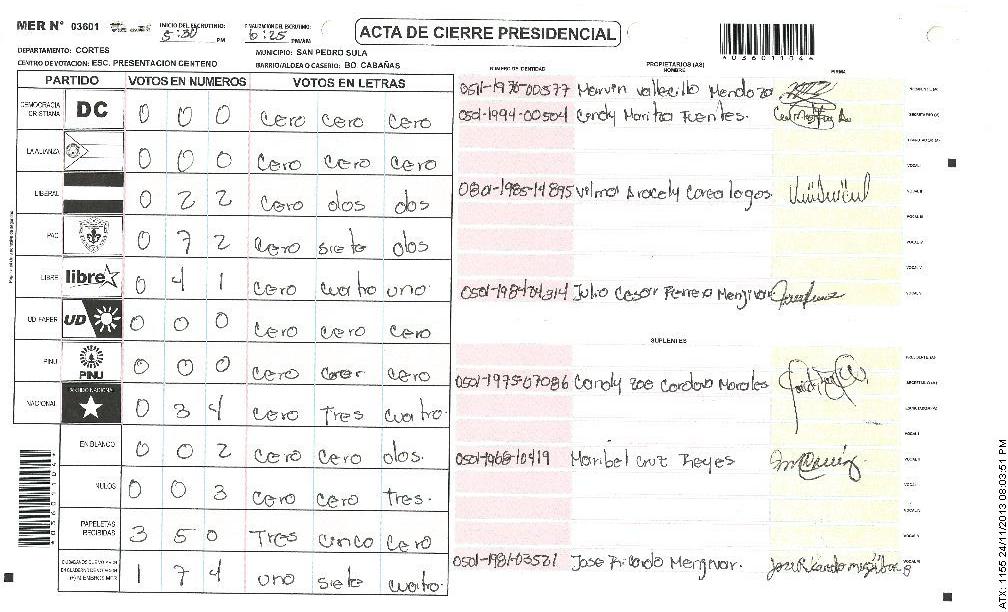 MER N° 03601 INICIO DEL ESCRUTINIO: 5:30 PM FINALIZACION DEL ESCRUTINIO: 6:25 PM/AM ACTA DE CIERRE PRESIDENCIAL
DEPARTAMENTO: CORTES MUNICIPIO: SAN PEDRO SULA
CENTRO DE VOTACION: ESC. PRESENTACION CENTENO BARRIO/ALDEA O CASERIO: BO. CABAÑAS
*036011044
NUMERO DE IDENTIDAD PROPIETARIOS (AS) NOMBRE FIRMA
PARTIDO VOTOS EN NUMEROS VOTOS EN LETRAS
DEMOCRACIA CRISTIANA DC 0 0 0 cero cero cero
LA ALIANZA 0 0 0 cero cero cero
LIBERAL 0 2 2 cero dos dos
PAC 0 7 2 cero siete dos
LIBRE libre 0 4 1 cero cuatro uno
UD FAPER UD 0 0 0 cero cero cero
PINU PINU 0 0 0 cero cero
NACIONAL PARTIDO NACIONAL 0 3 4 cero Tres cuatro.
EN BLANCO 0 0 2 cero cero dos.
NULOS 0 0 3 cero cero tres.
PAPELETAS RECIBIDAS 3 5 0 Tres cinco cero
1 7 4 uno siete cuatro.
0511-1976-00577 Marvin Vallecillo Mendoza
0501-1994-00504 Candy Maritza Fuentes.
0801-1985-14895 Vilma Aracely Corea lagos
Julio Cesar Ferrera Menjivar
SUPLENTES
0501-1975-07086 Candy Zoe Cordova Morales
0501-1968-10419 Maribel Cruz Reyes
0501-1981-03581 Jose Ricardo Menjivar.
ATX: 1155 24/11/2013 08:03:51 PM